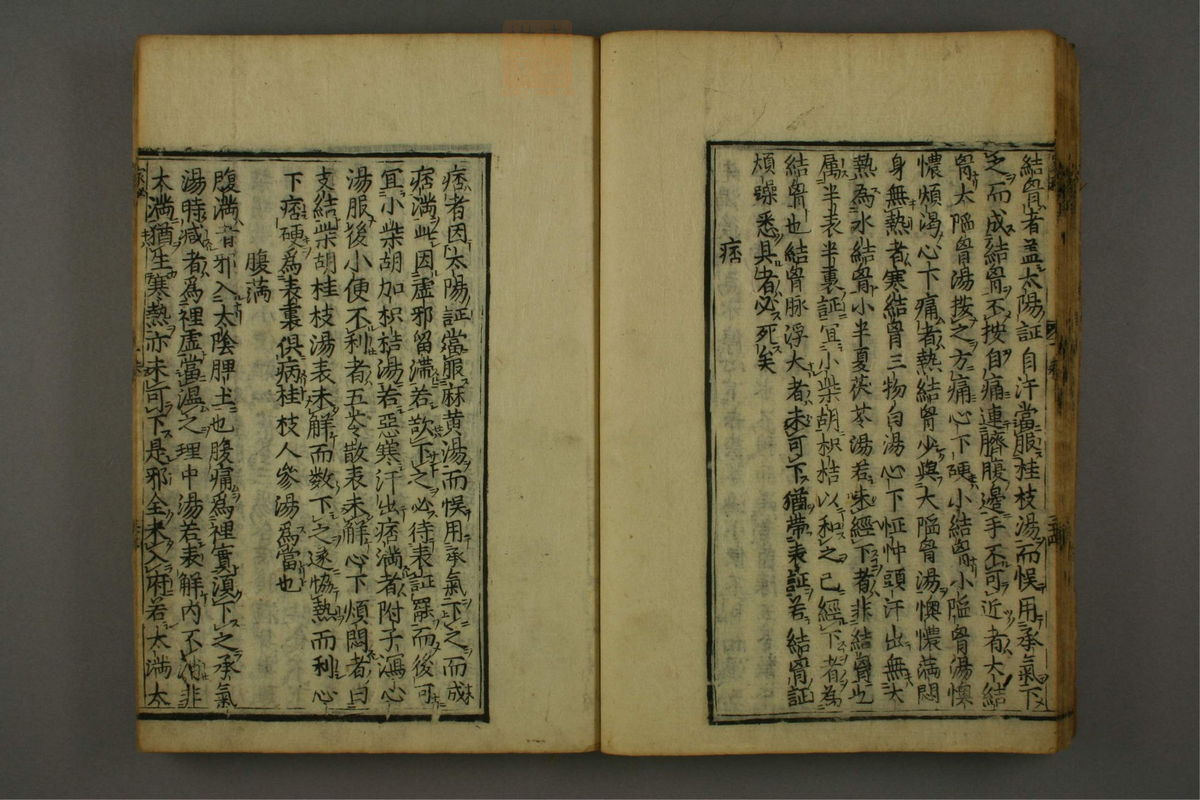 結胷者盖太陽証自汗當服桂枝湯而悞用承氣下
之而成結胷不按自痛連臍腹邊手不可近者大結
胷太陷胷湯按之方痛心下硬小結胷小陷胷湯懊
憹煩渴心下痛者熱結胷少與大陷胷湯懊憹滿悶
身無熱者寒結胷三物白湯心下怔忡頭汗出無大
熱為水結胷小半夏茯苓湯若未經下者非結胷也
属半表半裏証冝小柴胡枳桔以和之已經下者為
結胷也結胷脉浮大者未可下猶帶表証若結胷証
煩躁悉具者必死矣
痞
痞者因太陽証當服麻黄湯而悞用承氣下之而成
痞滿此因虛邪留滯若欲下之必待表証罷而後可
冝小柴胡加枳桔湯若惡寒汗出痞満者附子瀉心
湯服後小便不利者五苓散表未解心下煩悶者白
支結柴胡桂枝湯表未解而数下之遂恊熱而利心
下痞硬為表裏俱病桂枝人參湯為當也
腹満
腹満者邪入太陰脾土也腹痛為裡實湏下之承氣
湯時减者為裡虛當溫之理中湯若表解内不消非
太満猶生寒熱亦未可下是邪全未入府若太満太